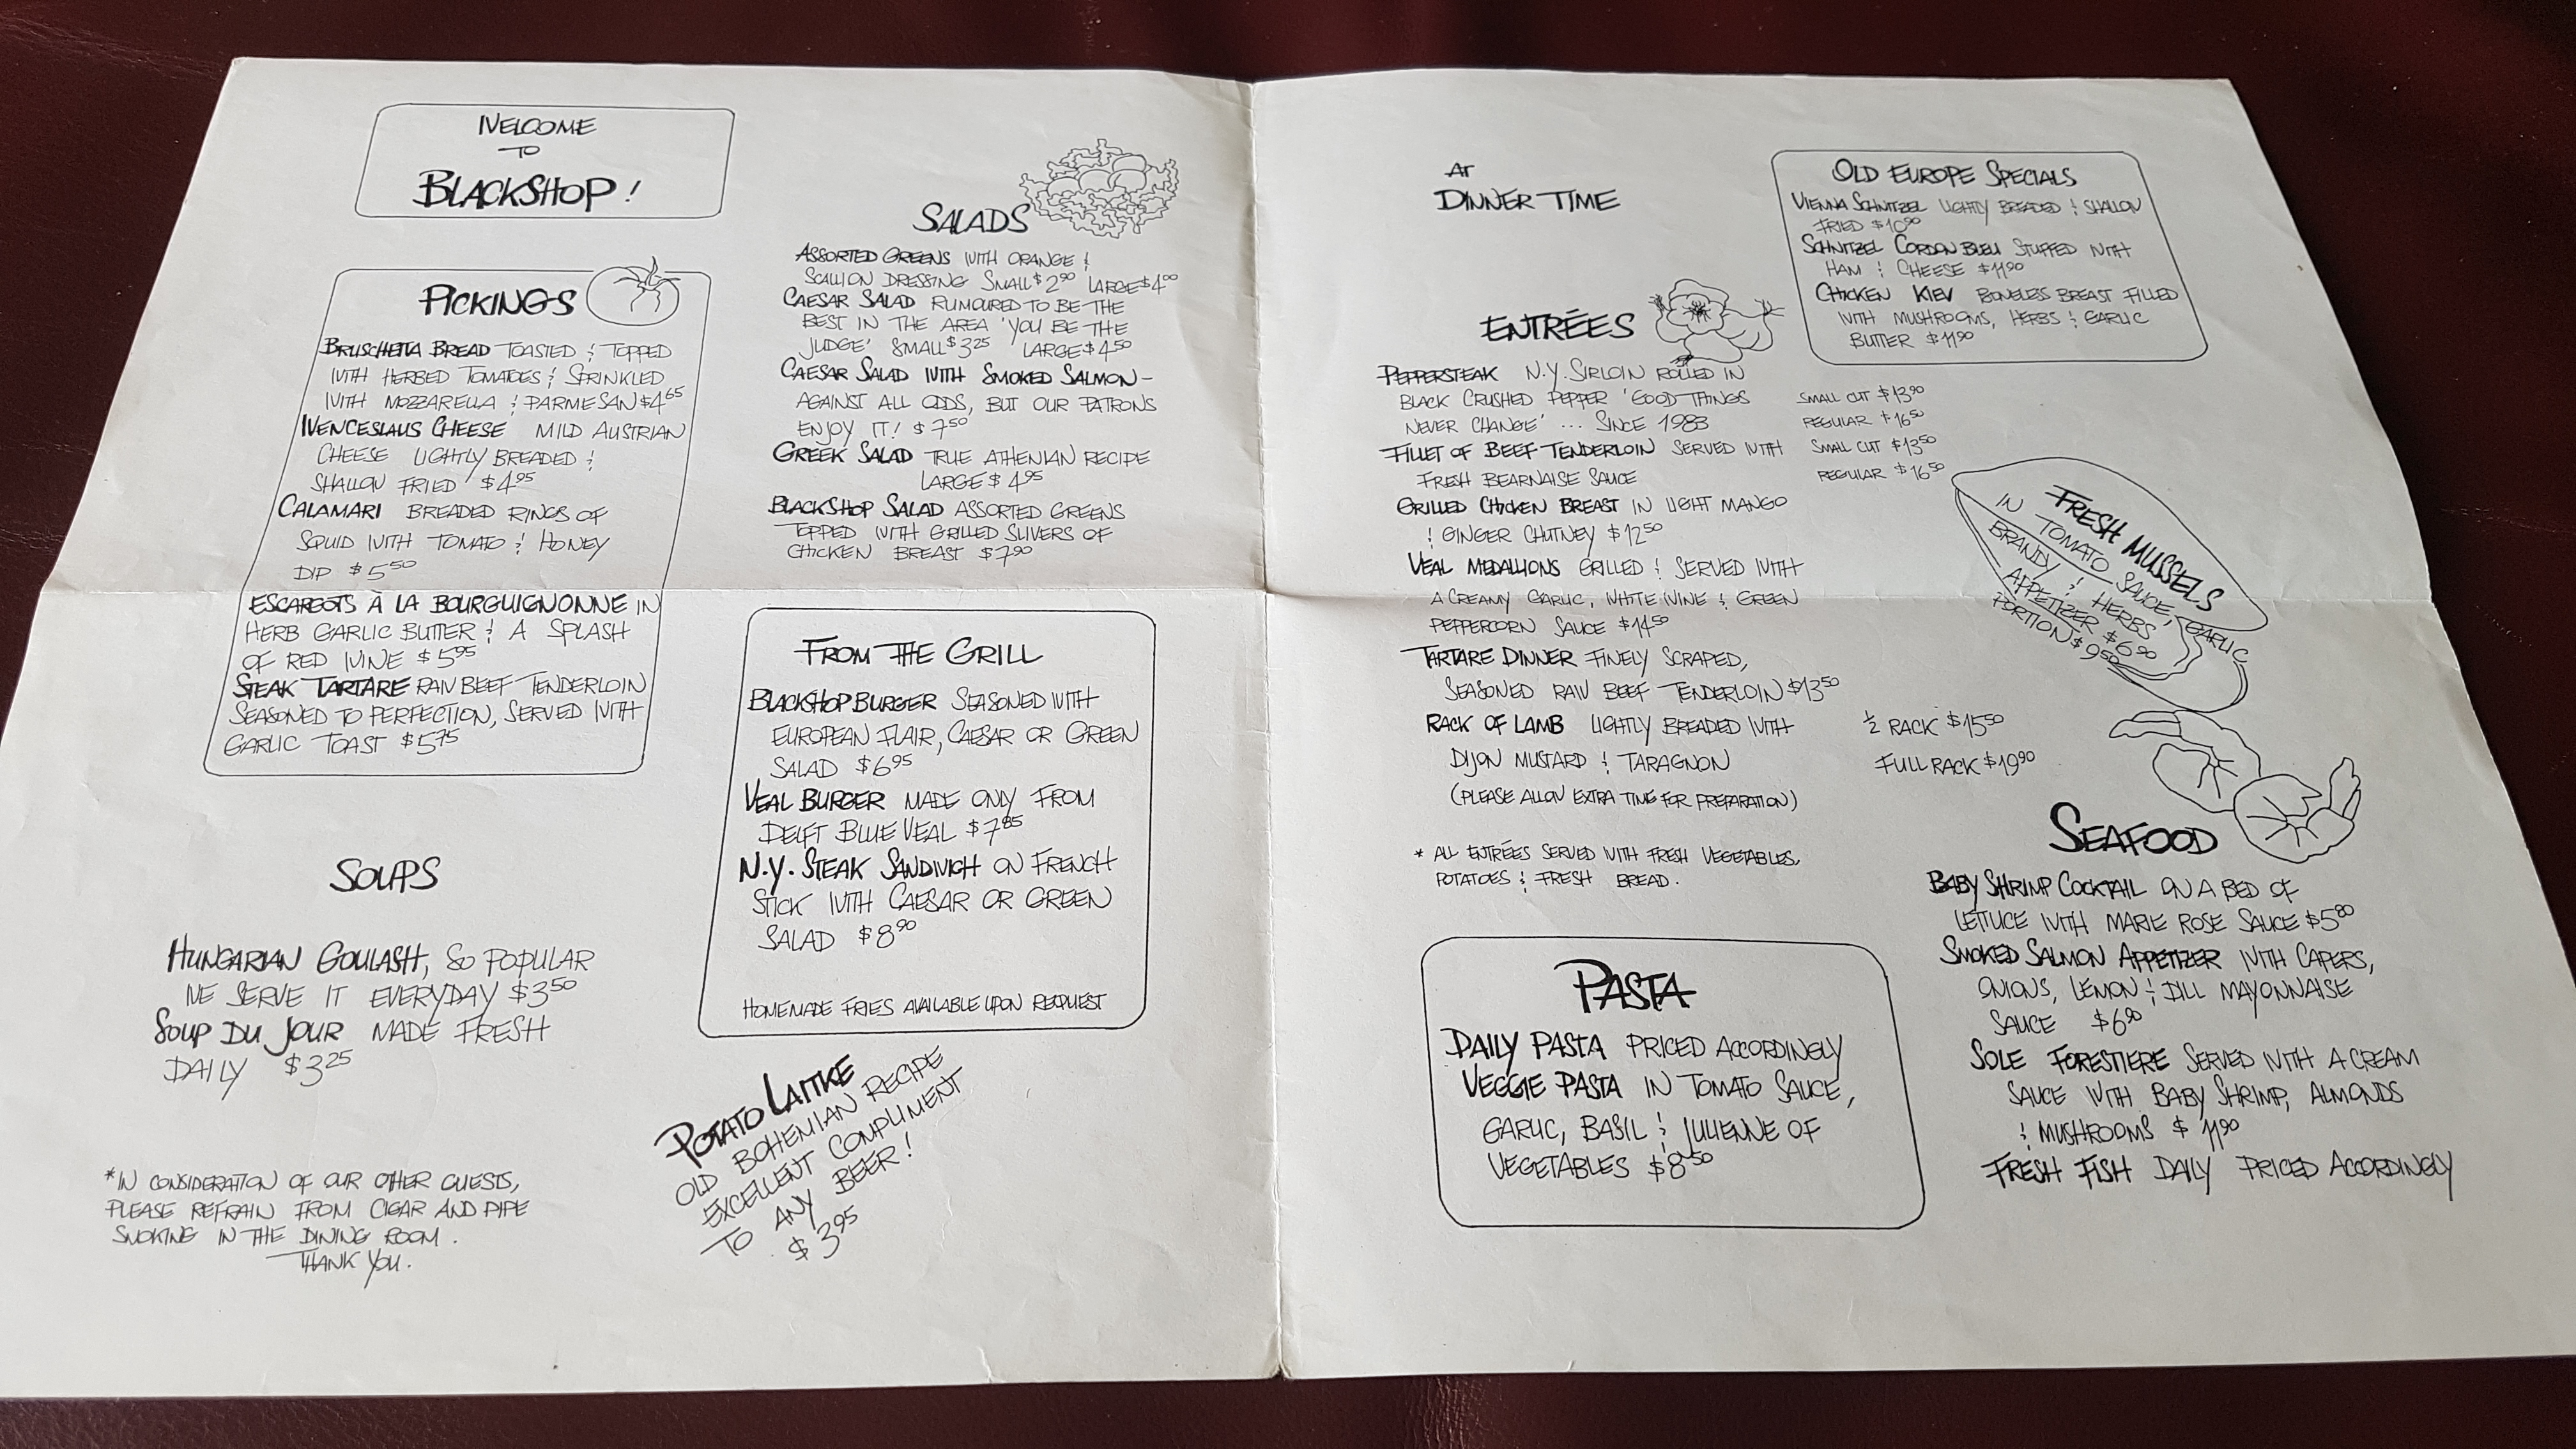 WELCOME
TO
BLACKSHOP!
PICKINGS
BRUSCHETTA BREAD TOASTED & TOPPED
WITH HERBED TOMATOES & SPRINKLED
WITH MOZZARELLA & PARMESAN $4.65
WENCESLAUS CHEESE MILD AUSTRIAN
CHEESE LIGHTLY BREADED &
SHALLOW FRIED $4.95
CALAMARI BREADED RINGS OF
SQUID WITH TOMATO & HONEY
DIP $5.50
ESCARGOTS À LA BOURGUIGNONNE IN
HERB GARLIC BUTTER & A SPLASH
OF RED WINE $5.95
STEAK TARTARE RAW BEEF TENDERLOIN
SEASONED TO PERFECTION, SERVED WITH
GARLIC TOAST $5.75
SOUPS
HUNGARIAN GOULASH, SO POPULAR
WE SERVE IT EVERYDAY $3.50
SOUP DU JOUR MADE FRESH
DAILY $3.25
*IN CONSIDERATION OF OUR OTHER GUESTS,
PLEASE REFRAIN FROM CIGAR AND PIPE
SMOKING IN THE DINING ROOM.
THANK YOU.
SALADS
ASSORTED GREENS WITH ORANGE &
SCALLION DRESSING SMALL $2.90 LARGE $4.00
CAESAR SALAD RUMOURED TO BE THE
BEST IN THE AREA 'YOU BE THE
JUDGE' SMALL $3.25 LARGE $4.50
CAESAR SALAD WITH SMOKED SALMON-
AGAINST ALL ODDS, BUT OUR PATRONS
ENJOY IT! $7.50
GREEK SALAD TRUE ATHENIAN RECIPE
LARGE $4.95
BLACKSHOP SALAD ASSORTED GREENS
TOPPED WITH GRILLED SLIVERS OF
CHICKEN BREAST $7.90
FROM THE GRILL
BLACKSHOP BURGER SEASONED WITH
EUROPEAN FLAIR, CAESAR OR GREEN
SALAD $6.95
VEAL BURGER MADE ONLY FROM
DELFT BLUE VEAL $7.85
N.Y. STEAK SANDWICH ON FRENCH
STICK WITH CAESAR OR GREEN
SALAD $8.90
HOMEMADE FRIES AVAILABLE UPON REQUEST
POTATO LATTKE
OLD BOHEMIAN RECIPE
EXCELLENT COMPLIMENT
TO ANY BEER!
$3.95
AT
DINNER TIME
ENTRÉES
PEPPERSTEAK N.Y. SIRLOIN ROLLED IN
BLACK CRUSHED PEPPER 'GOOD THINGS SMALL CUT $13.90
NEVER CHANGE' ... SINCE 1983 REGULAR $16.50
FILLET OF BEEF TENDERLOIN SERVED WITH SMALL CUT $13.50
FRESH BEARNAISE SAUCE REGULAR $16.50
GRILLED CHICKEN BREAST IN LIGHT MANGO
& GINGER CHUTNEY $12.50
VEAL MEDALLIONS GRILLED & SERVED WITH
A CREAMY GARLIC, WHITE WINE & GREEN
PEPPERCORN SAUCE $14.50
TARTARE DINNER FINELY SCRAPED,
SEASONED RAW BEEF TENDERLOIN $13.50
RACK OF LAMB LIGHTLY BREADED WITH ½ RACK $15.50
DIJON MUSTARD & TARAGNON FULL RACK $19.90
(PLEASE ALLOW EXTRA TIME FOR PREPARATION)
* ALL ENTRÉES SERVED WITH FRESH VEGETABLES,
POTATOES & FRESH BREAD.
PASTA
DAILY PASTA PRICED ACCORDINGLY
VEGGIE PASTA IN TOMATO SAUCE,
GARLIC, BASIL & JULIENNE OF
VEGETABLES $8.50
OLD EUROPE SPECIALS
VIENNA SCHNITZEL LIGHTLY BREADED & SHALLOW
FRIED $10.90
SCHNITZEL CORDON BLEU STUFFED WITH
HAM & CHEESE $11.90
CHICKEN KIEV BONELESS BREAST FILLED
WITH MUSHROOMS, HERBS & GARLIC
BUTTER $11.90
FRESH MUSSELS
IN TOMATO SAUCE, GARLIC
BRANDY & HERBS
APPETIZER $6.90
PORTION $9.50
SEAFOOD
BABY SHRIMP COCKTAIL ON A BED OF
LETTUCE WITH MARIE ROSE SAUCE $5.80
SMOKED SALMON APPETIZER WITH CAPERS,
ONIONS, LEMON & DILL MAYONNAISE
SAUCE $6.90
SOLE FORESTIERE SERVED WITH A CREAM
SAUCE WITH BABY SHRIMP, ALMONDS
& MUSHROOMS $11.90
FRESH FISH DAILY PRICED ACCORDINGLY